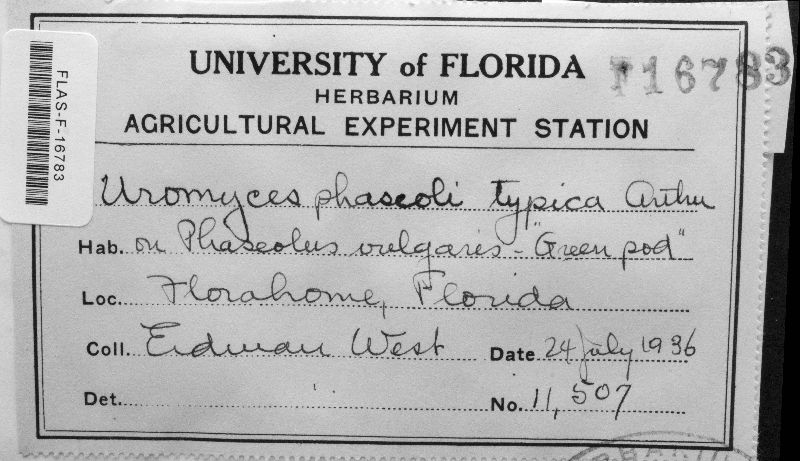 UNIVERSITY of FLORIDA
F16783
HERBARIUM
AGRICULTURAL EXPERIMENT STATION
FLAS-F-16783
Uromyces phaseoli typica Arthur
Hab. on Phaseolus vulgaris - "Green pod"
Loc. Florahome, Florida
Coll. Erdman West Date 24 July 1936
Det.
No. 11,507